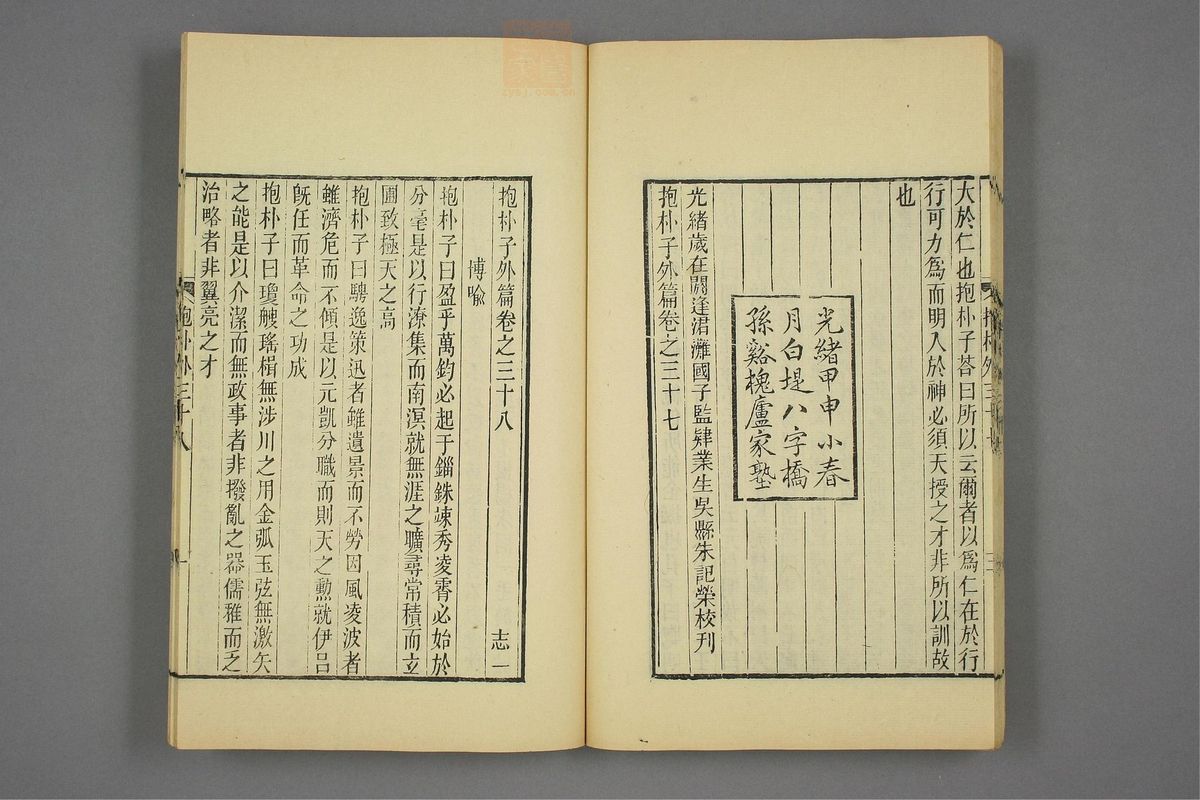 大於仁也抱朴子荅曰所以云爾者以爲仁在於行
行可力爲而明人於神必須天授之才非所以訓故
也
光緒甲申小春
月白堤八字橋
孫谿槐廬家塾
光緒歲在閼逢涒灘國子監肄業生吳縣朱記榮校刊
抱朴子外篇卷之三十七
抱朴子外篇卷之三十八
志一
博喻
抱朴子曰盈乎萬鈞必起于錙銖竦秀凌霄必始於
分毫是以行潦集而南溟就無涯之曠尋常積而立
圃致極天之高
抱朴子曰騁逸策迅者雖遺景而不勞因風凌波者
雖濟危而不傾是以元凱分職而則天之勳就伊呂
旣任而革命之功成
抱朴子曰瓊艘瑤楫無涉川之用金弧玉弦無激矢
之能是以介潔而無政事者非撥亂之器儒雅而乏
治略者非翼亮之才
抱朴外三十八
一
zysj.com.cn